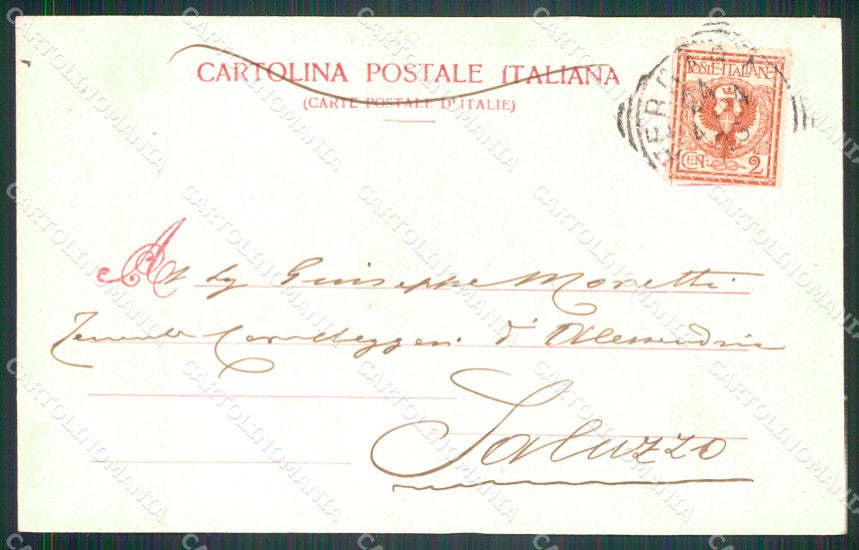 CARTOLINA POSTALE ITALIANA
(CARTE POSTALE D'ITALIE)
POSTE·ITALIANE
CEN. 2
Al Sg Giuseppe Moretti
Tenente Cavalleggeri d'Alessandria
Saluzzo
CARTOLINOMANIA